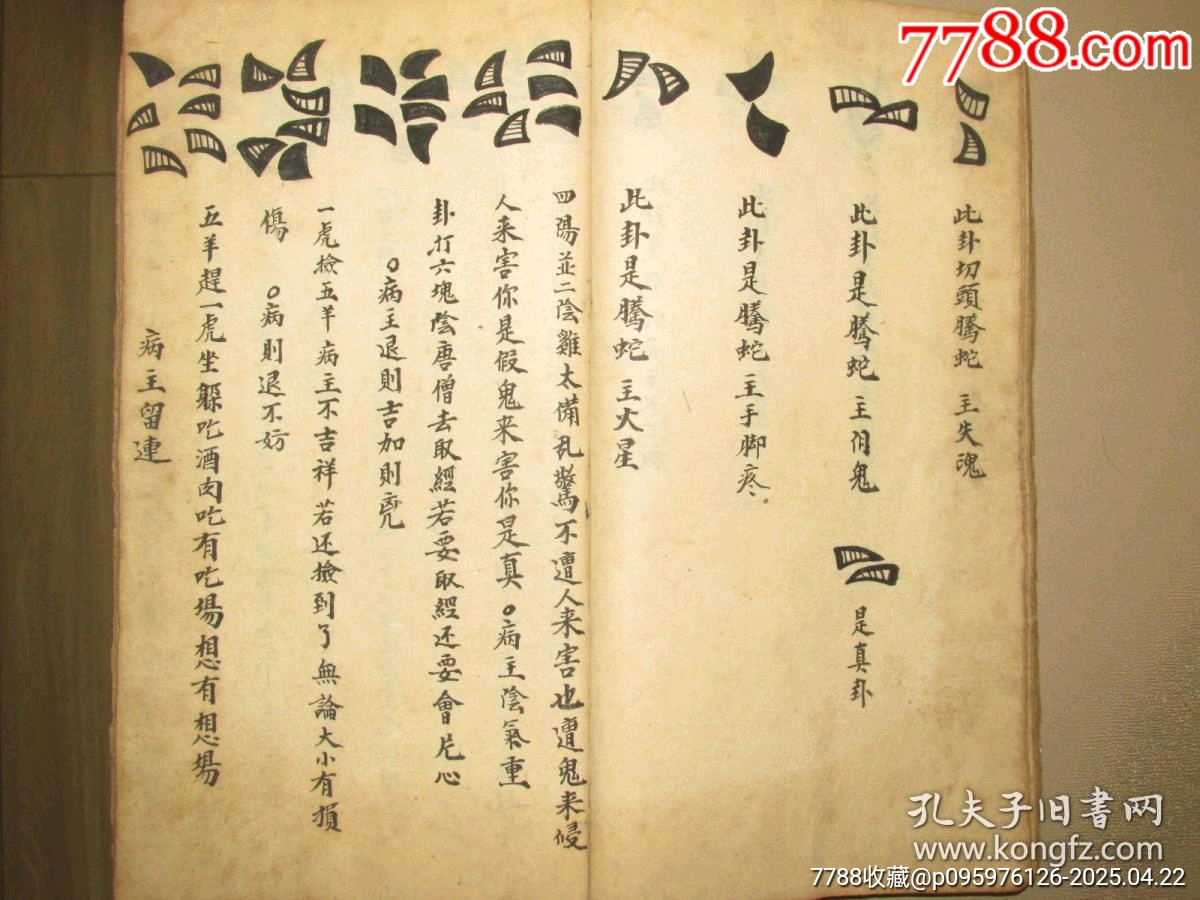 此卦切頭騰蛇 主失魂
此卦是騰蛇 主阴鬼
是真卦
此卦是騰蛇 主手脚疼
此卦是騰蛇 主火星
四陽並二陰雞太備乱驚不遭人来害也遭鬼来侵
人来害你是假鬼来害你是真○病主陰氣重
卦打六塊陰唐僧去取經若要取經还要會片心
○病主退則吉加則凶
一虎撿五羊病主不吉祥若还撿到了無論大小有損
傷 ○病則退不妨
五羊趕一虎坐躲吃酒肉吃有吃場想有想場
病主留連
7788.com
孔夫子旧書网
www.kongfz.com
7788收藏@p095976126-2025.04.22